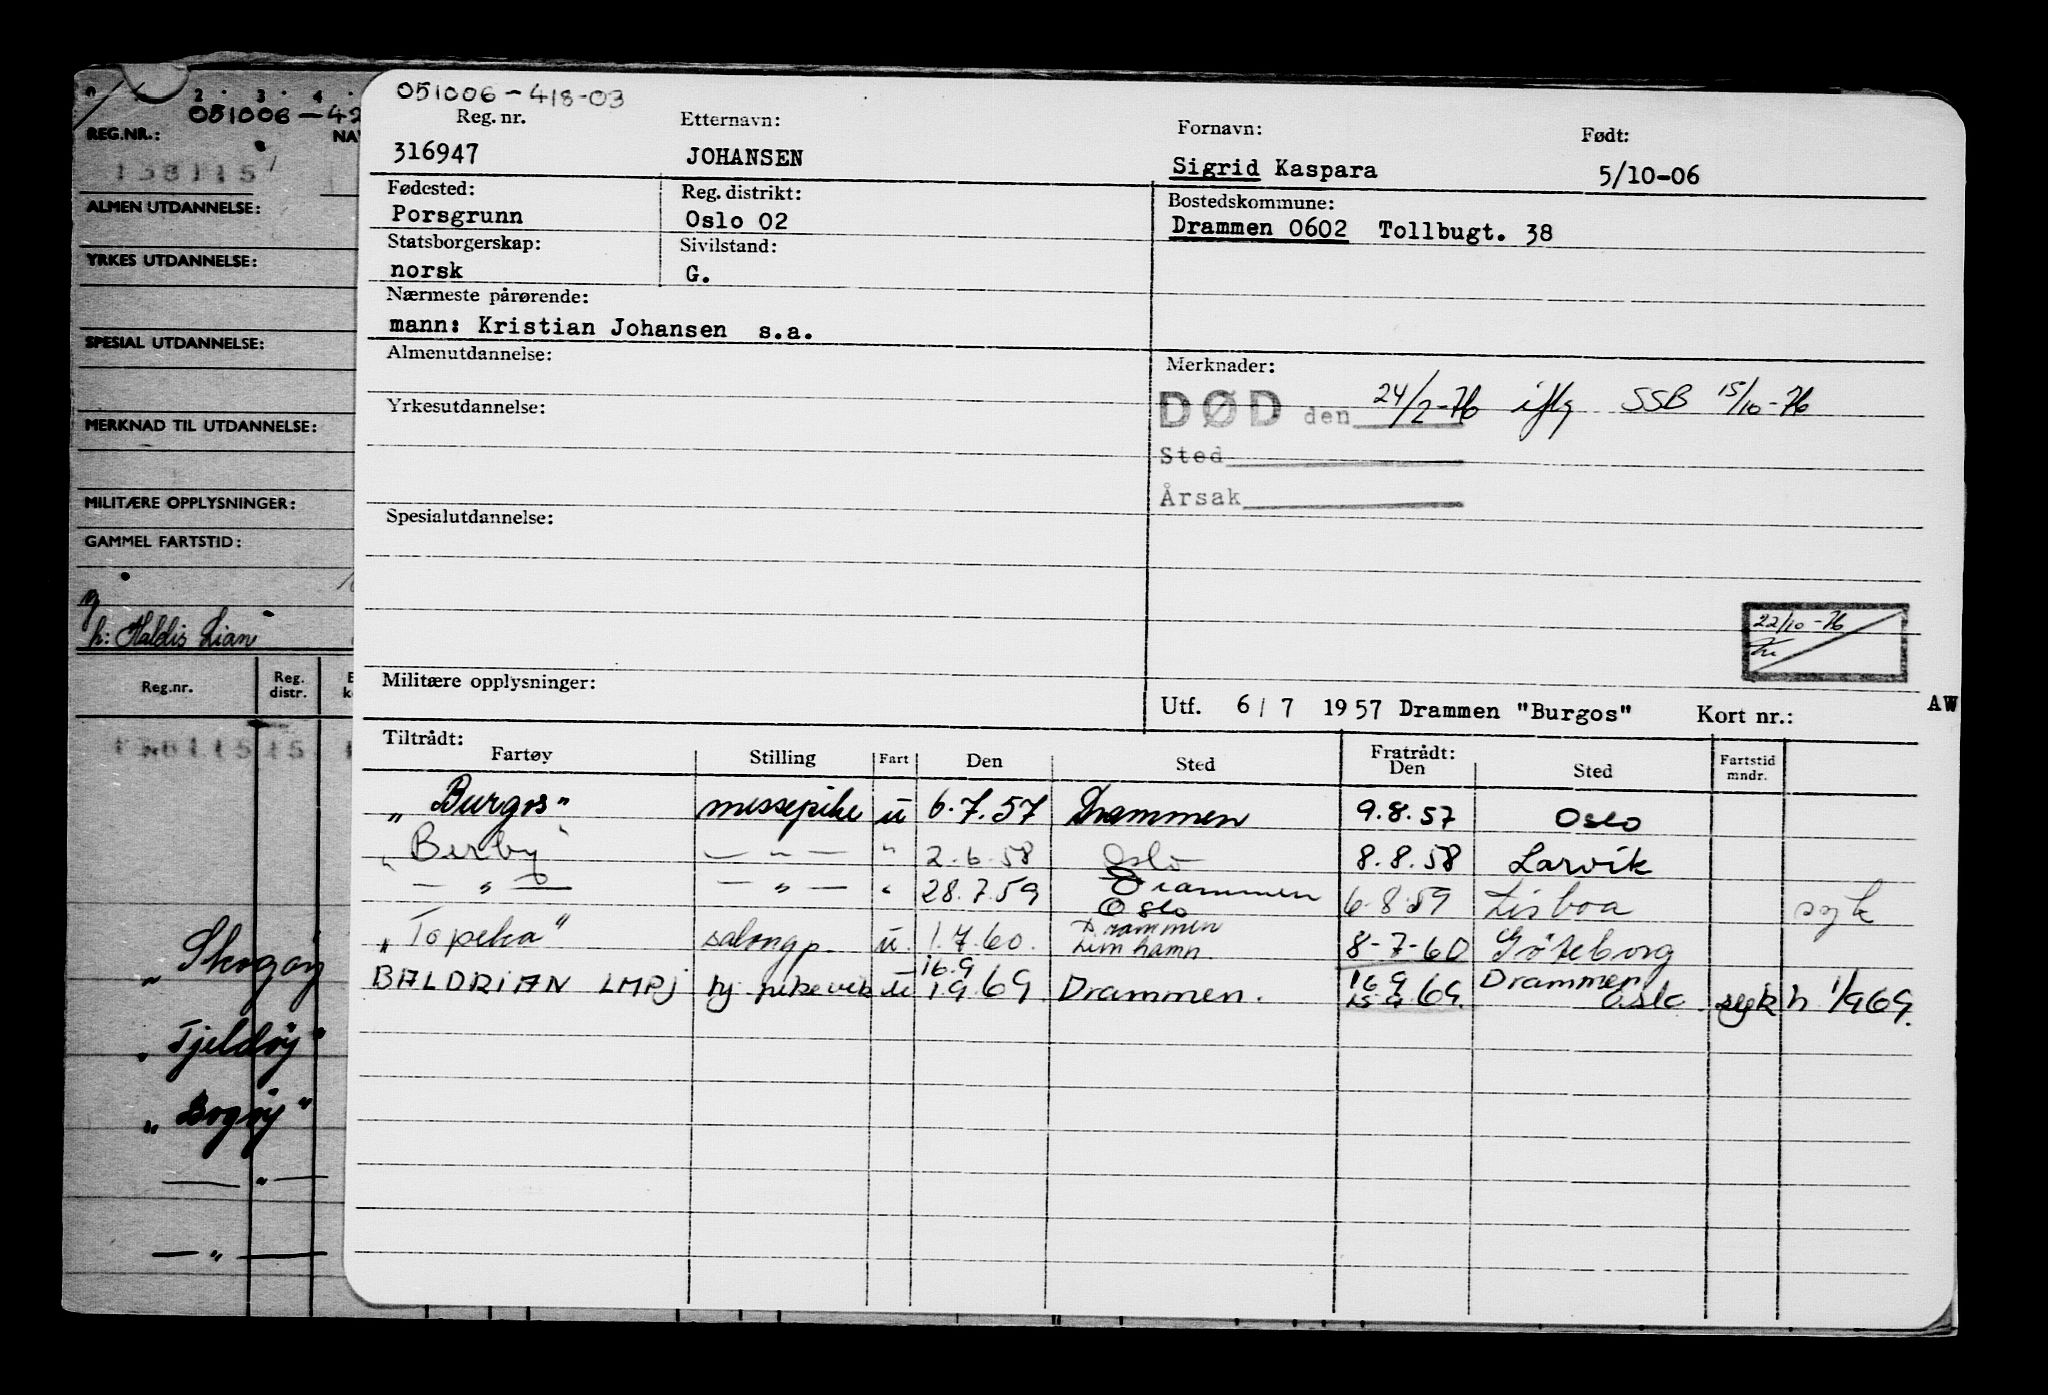 051006-418-03
Reg. nr. Etternavn: Fornavn: Født:
316947 JOHANSEN Sigrid Kaspara 5/10-06
Fødested: Reg. distrikt: Bostedskommune:
Porsgrunn Oslo 02 Drammen 0602 Tollbugt. 38
Statsborgerskap: Sivilstand:
norsk G.
Nærmeste pårørende:
mann: Kristian Johansen s.a.
Almenutdannelse: Merknader:
DØD den 24/2-76 iflg SSB 15/10-76
Yrkesutdannelse:
Sted
Årsak
Spesialutdannelse:
22/10-76
Militære opplysninger:
Utf. 6/7 1957 Drammen "Burgos" Kort nr.: AW
Tiltrådt: Fratrådt:
Fartøy Stilling Fart Den Sted Den Sted Fartstid mndr.
„Burgos" messepike u 6.7.57 Drammen 9.8.57 Oslo
„Berby" — " — " 2.6.58 Oslo 8.8.58 Larvik
— " — — " — " 28.7.59 Drammen Oslo 6.8.59 Lisboa syk
„Topeka" salongp. u. 1.7.60. Drammen Limhamn. 8-7-60 Göteborg
BALDRIAN LMPJ pikevik u 16.9 1.9.69. Drammen. 16 9 15.9.69. Drammen Oslo. syk h 1/9 69.
0 2 . 3 . 4 .
051006-42
REG.NR.: NA
138115
ALMEN UTDANNELSE:
YRKES UTDANNELSE:
SPESIAL UTDANNELSE:
MERKNAD TIL UTDANNELSE:
MILITÆRE OPPLYSNINGER:
GAMMEL FARTSTID:
g
h: Haldis Lian
Reg.nr. Reg. distr.
„Skogøy
„Tjeldøy"
„Bogøy"
— " —
— " —